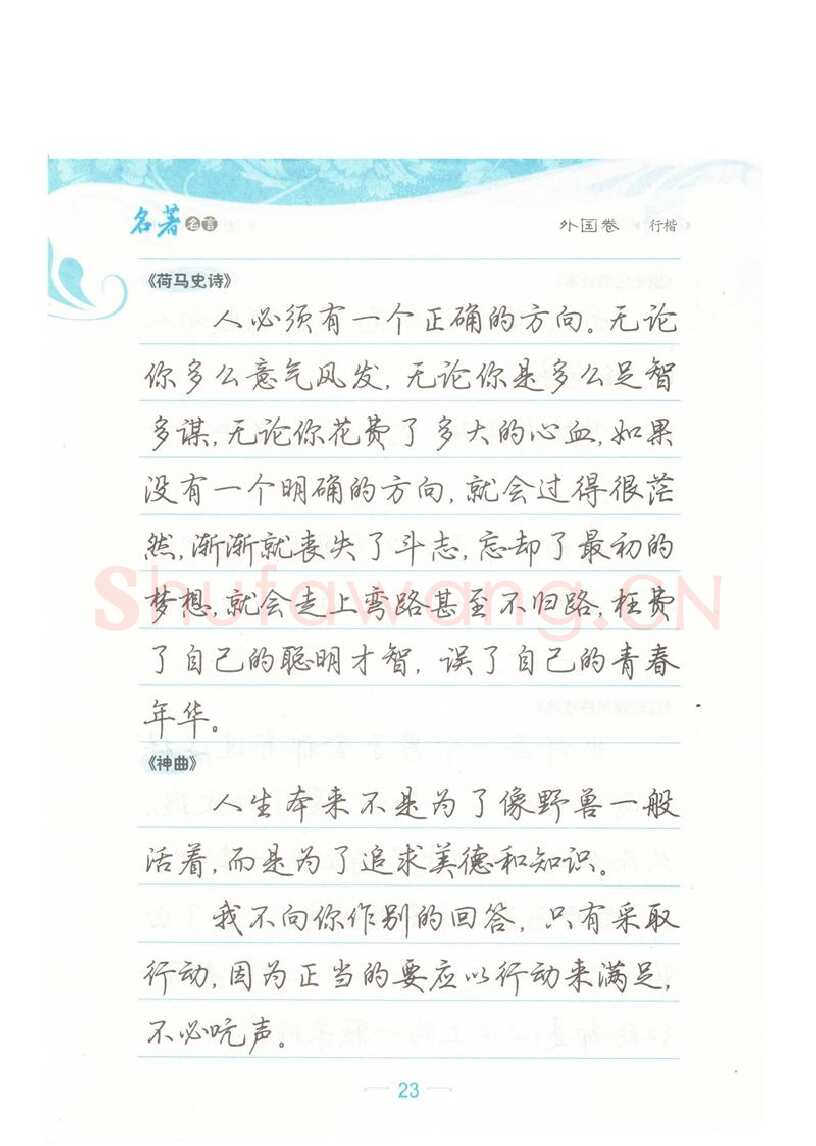 名著名言
外国卷 行楷
《荷马史诗》
人必须有一个正确的方向。无论
你多么意气风发,无论你是多么足智
多谋,无论你花费了多大的心血,如果
没有一个明确的方向,就会过得很茫
然,渐渐就丧失了斗志,忘却了最初的
梦想,就会走上弯路甚至不归路,枉费
了自己的聪明才智,误了自己的青春
年华。
《神曲》
人生本来不是为了像野兽一般
活着,而是为了追求美德和知识。
我不向你作别的回答,只有采取
行动,因为正当的要应以行动来满足,
不必吭声。
23
Shufawang.CN